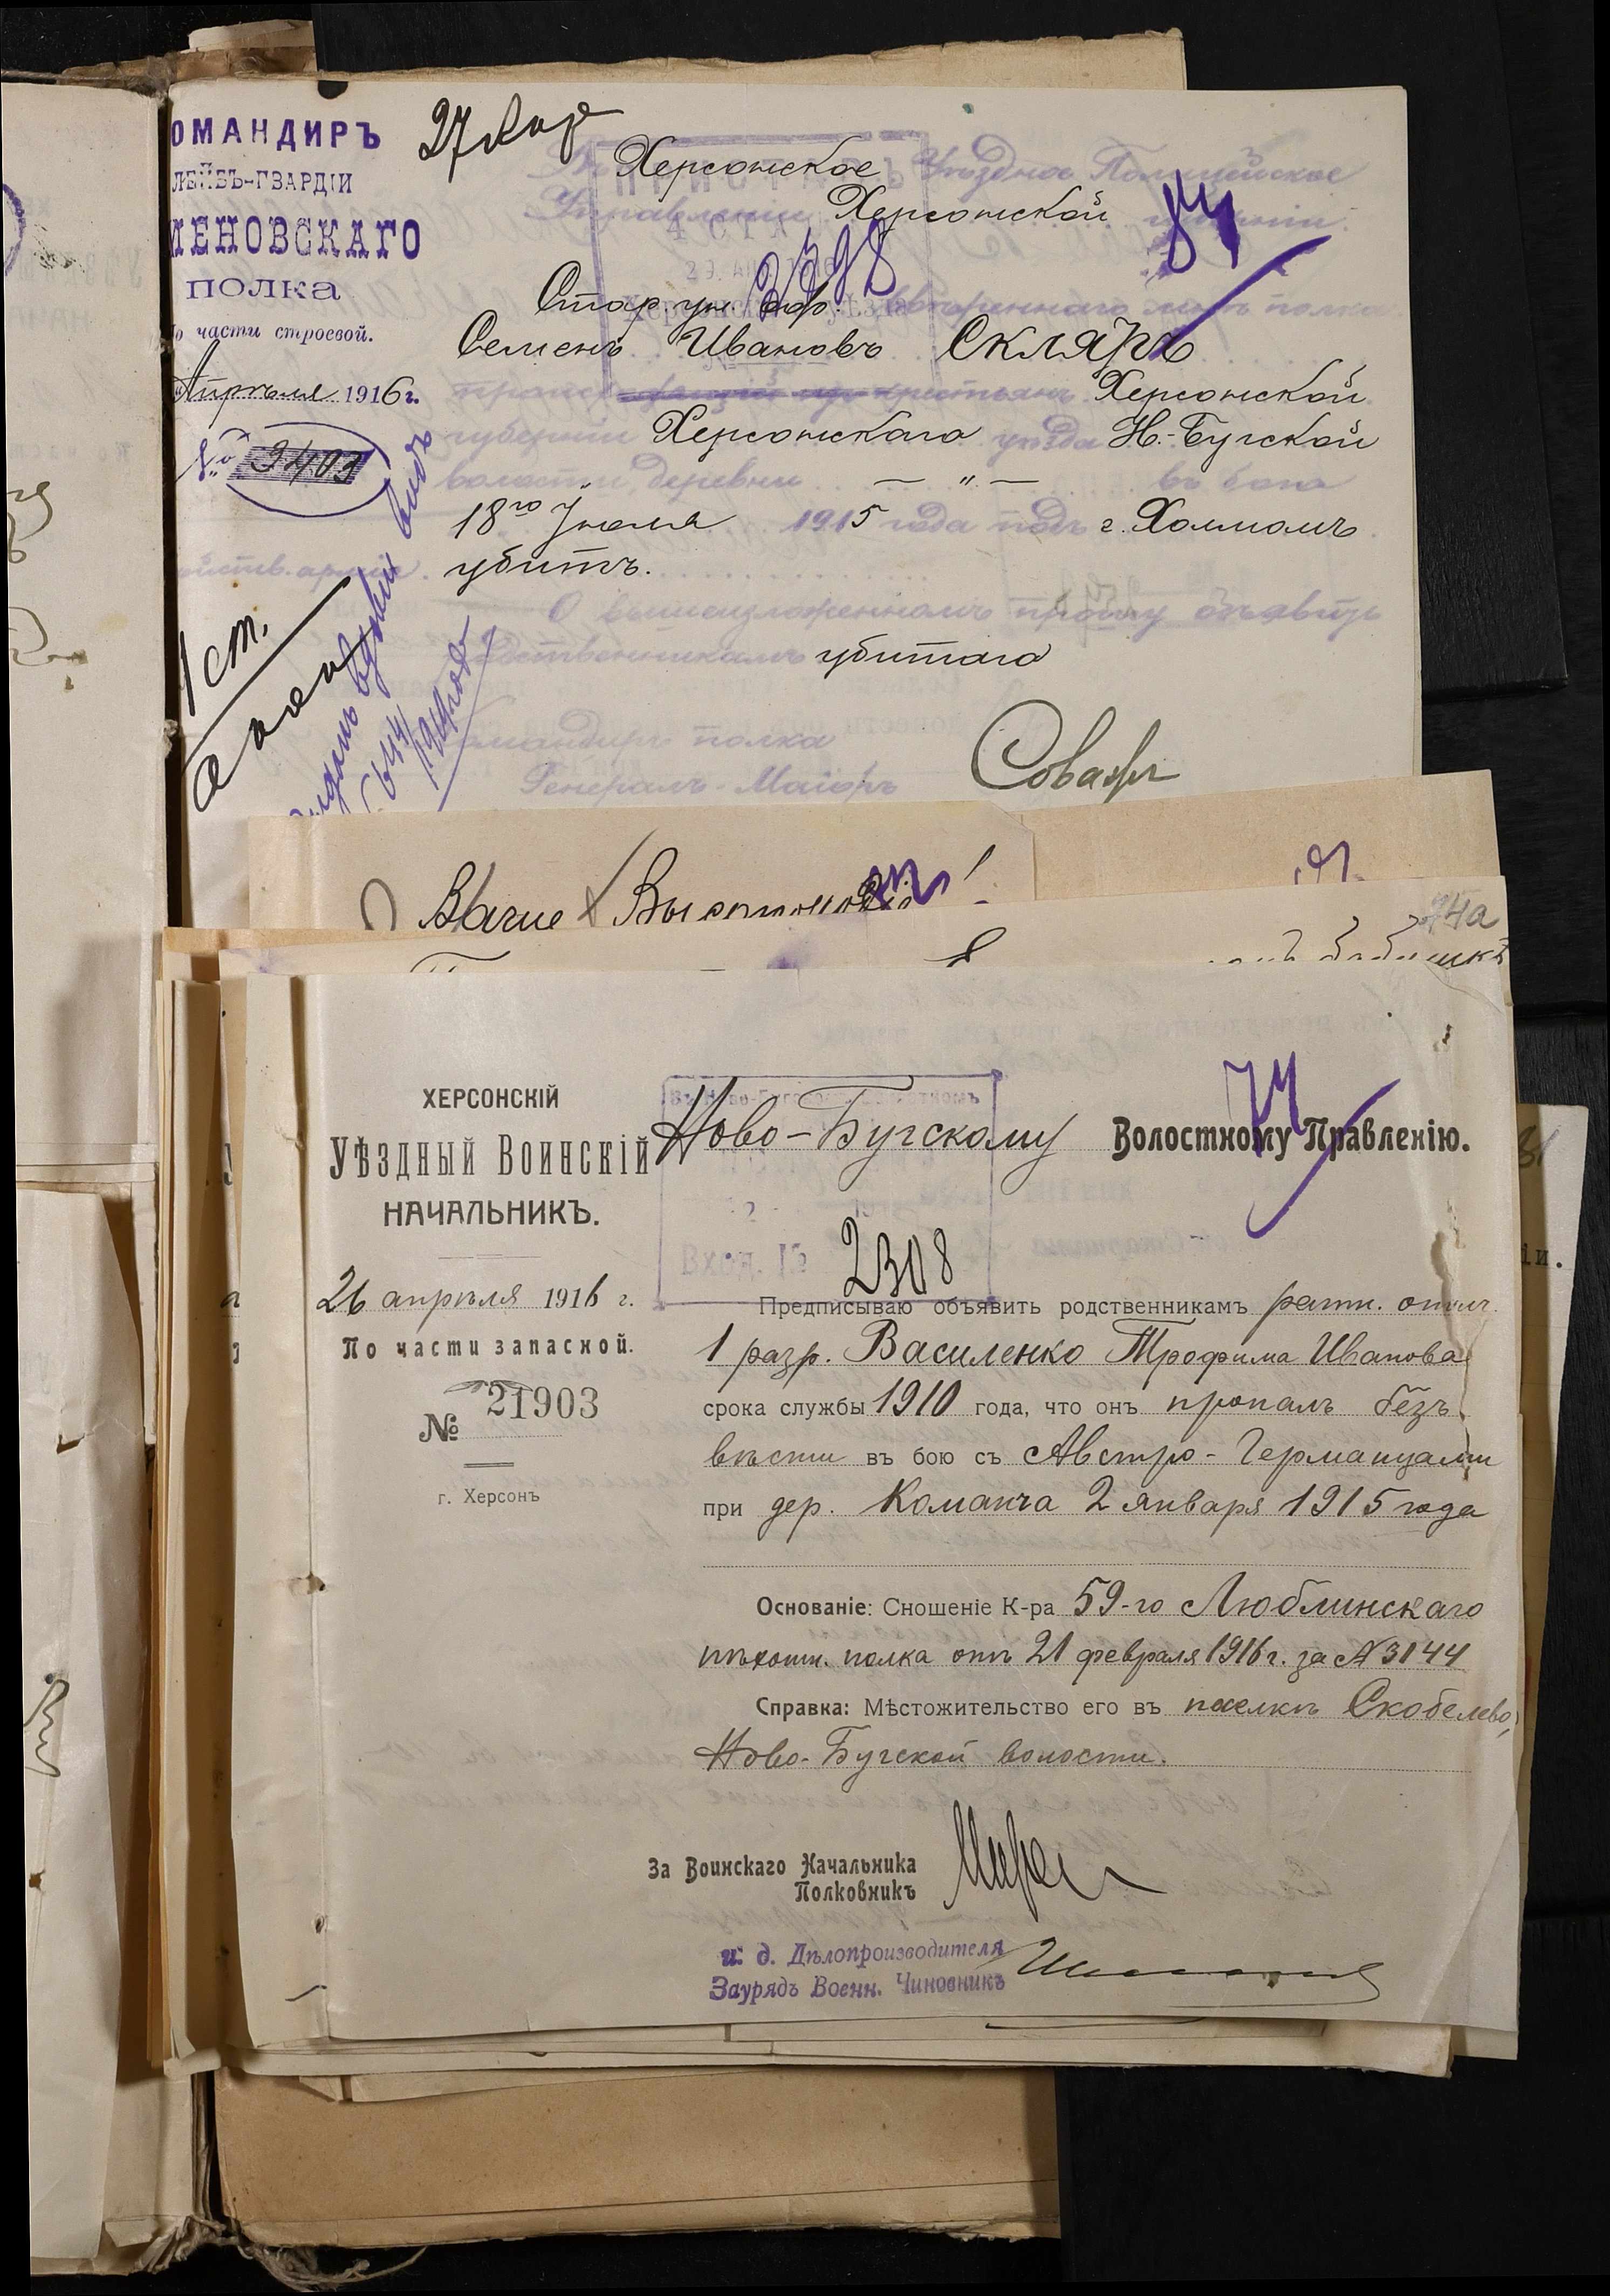 ОМАНДИРЪ
ЛЕЙБЪ-ГВАРДІИ
МЕНОВСКАГО
ПОЛКА
о части строевой.
Апрѣля 1916 г.
№ 3403
27
84
Херсонское Уѣздное Полицейское
Управленіе Херсонской губерніи.
3398
Стар. ун. оф. ввѣреннаго мнѣ полка
Семенъ Ивановъ Скляръ
Херсонской
губерніи Херсонскаго уѣзда Н.-Бугской
волости, деревни — " — въ бою
18го Іюля 1915 года подъ г. Холмомъ
убитъ.
О вышеизложенномъ прошу объявить
родственникамъ убитаго
1 ст.
Командиръ полка
Генералъ-Маіоръ
Ваше
74а
ХЕРСОНСКІЙ
УѢЗДНЫЙ ВОИНСКІЙ
НАЧАЛЬНИКЪ.
26 апрѣля 1916 г.
По части запасной.
№ 21903
г. Херсонъ
74
Ново-Бугскому Волостному Правленію.
Вход. №
2308
Предписываю объявить родственникамъ ратн. ополч.
1 разр. Василенко Трофима Иванова
срока службы 1910 года, что онъ пропалъ безъ
вѣсти въ бою съ Австро-Германцами
при дер. Команча 2 января 1915 года
Основаніе: Сношеніе К-ра 59-го Люблинскаго
пѣхотн. полка отъ 21 февраля 1916 г. за № 3144
Справка: Мѣстожительство его въ поселкѣ Скобелево,
Ново-Бугской волости.
За Воинскаго Начальника
Полковникъ
и. д. Дѣлопроизводителя
Заурядъ Военн. Чиновникъ